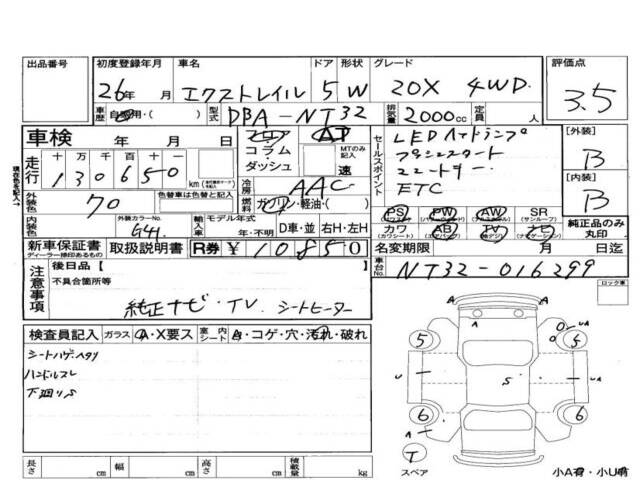 出品番号 初度登録年月 車名 ドア 形状 グレード 評価点
26年 月 エクストレイル 5 W 20X 4WD 3.5
車歴 自家用・( ) 型式 DBA-NT32 排気量 2000cc 定員 人
車検 年 月 日
フロア コラム ダッシュ AT MTのみ記入 速
セールスポイント LEDヘッドランプ
プッシュスタート
ETC
[外装] B
[内装] B
現状を記入→
走行 十万千百十 130650 km
冷房 AAC
燃料 ガソリン・軽油・( )
外装色 70 色替車は色替と記入
内装色 外装カラーNo. G41
輸入車 モデル年式 年・不明 D車・並 右H・左H
PS (パワステ) PW (パワーウインド) AW SR (サンルーフ)
カワ (カワシート) AB (エアバック) TV ナビ (ナビゲーション)
純正品のみ丸印
新車保証書 ディーラー捺印あるもの 取扱説明書 R券 ¥10850
名変期限 月 日迄
車台No. NT32-016299
注意事項 後日品【 】
不具合箇所等
純正ナビ・TV シートヒーター
ロック車
検査員記入 ガラス A・X要ス 室内シート A・コゲ・穴・汚れ・破れ
シートハゲヘタリ
ハンドルスレ
下廻りS
A A U A
5 5
U S U A
6 6
A
T
スペア
小A有・小U有
長さ cm 幅 cm 高さ cm 積載量 kg